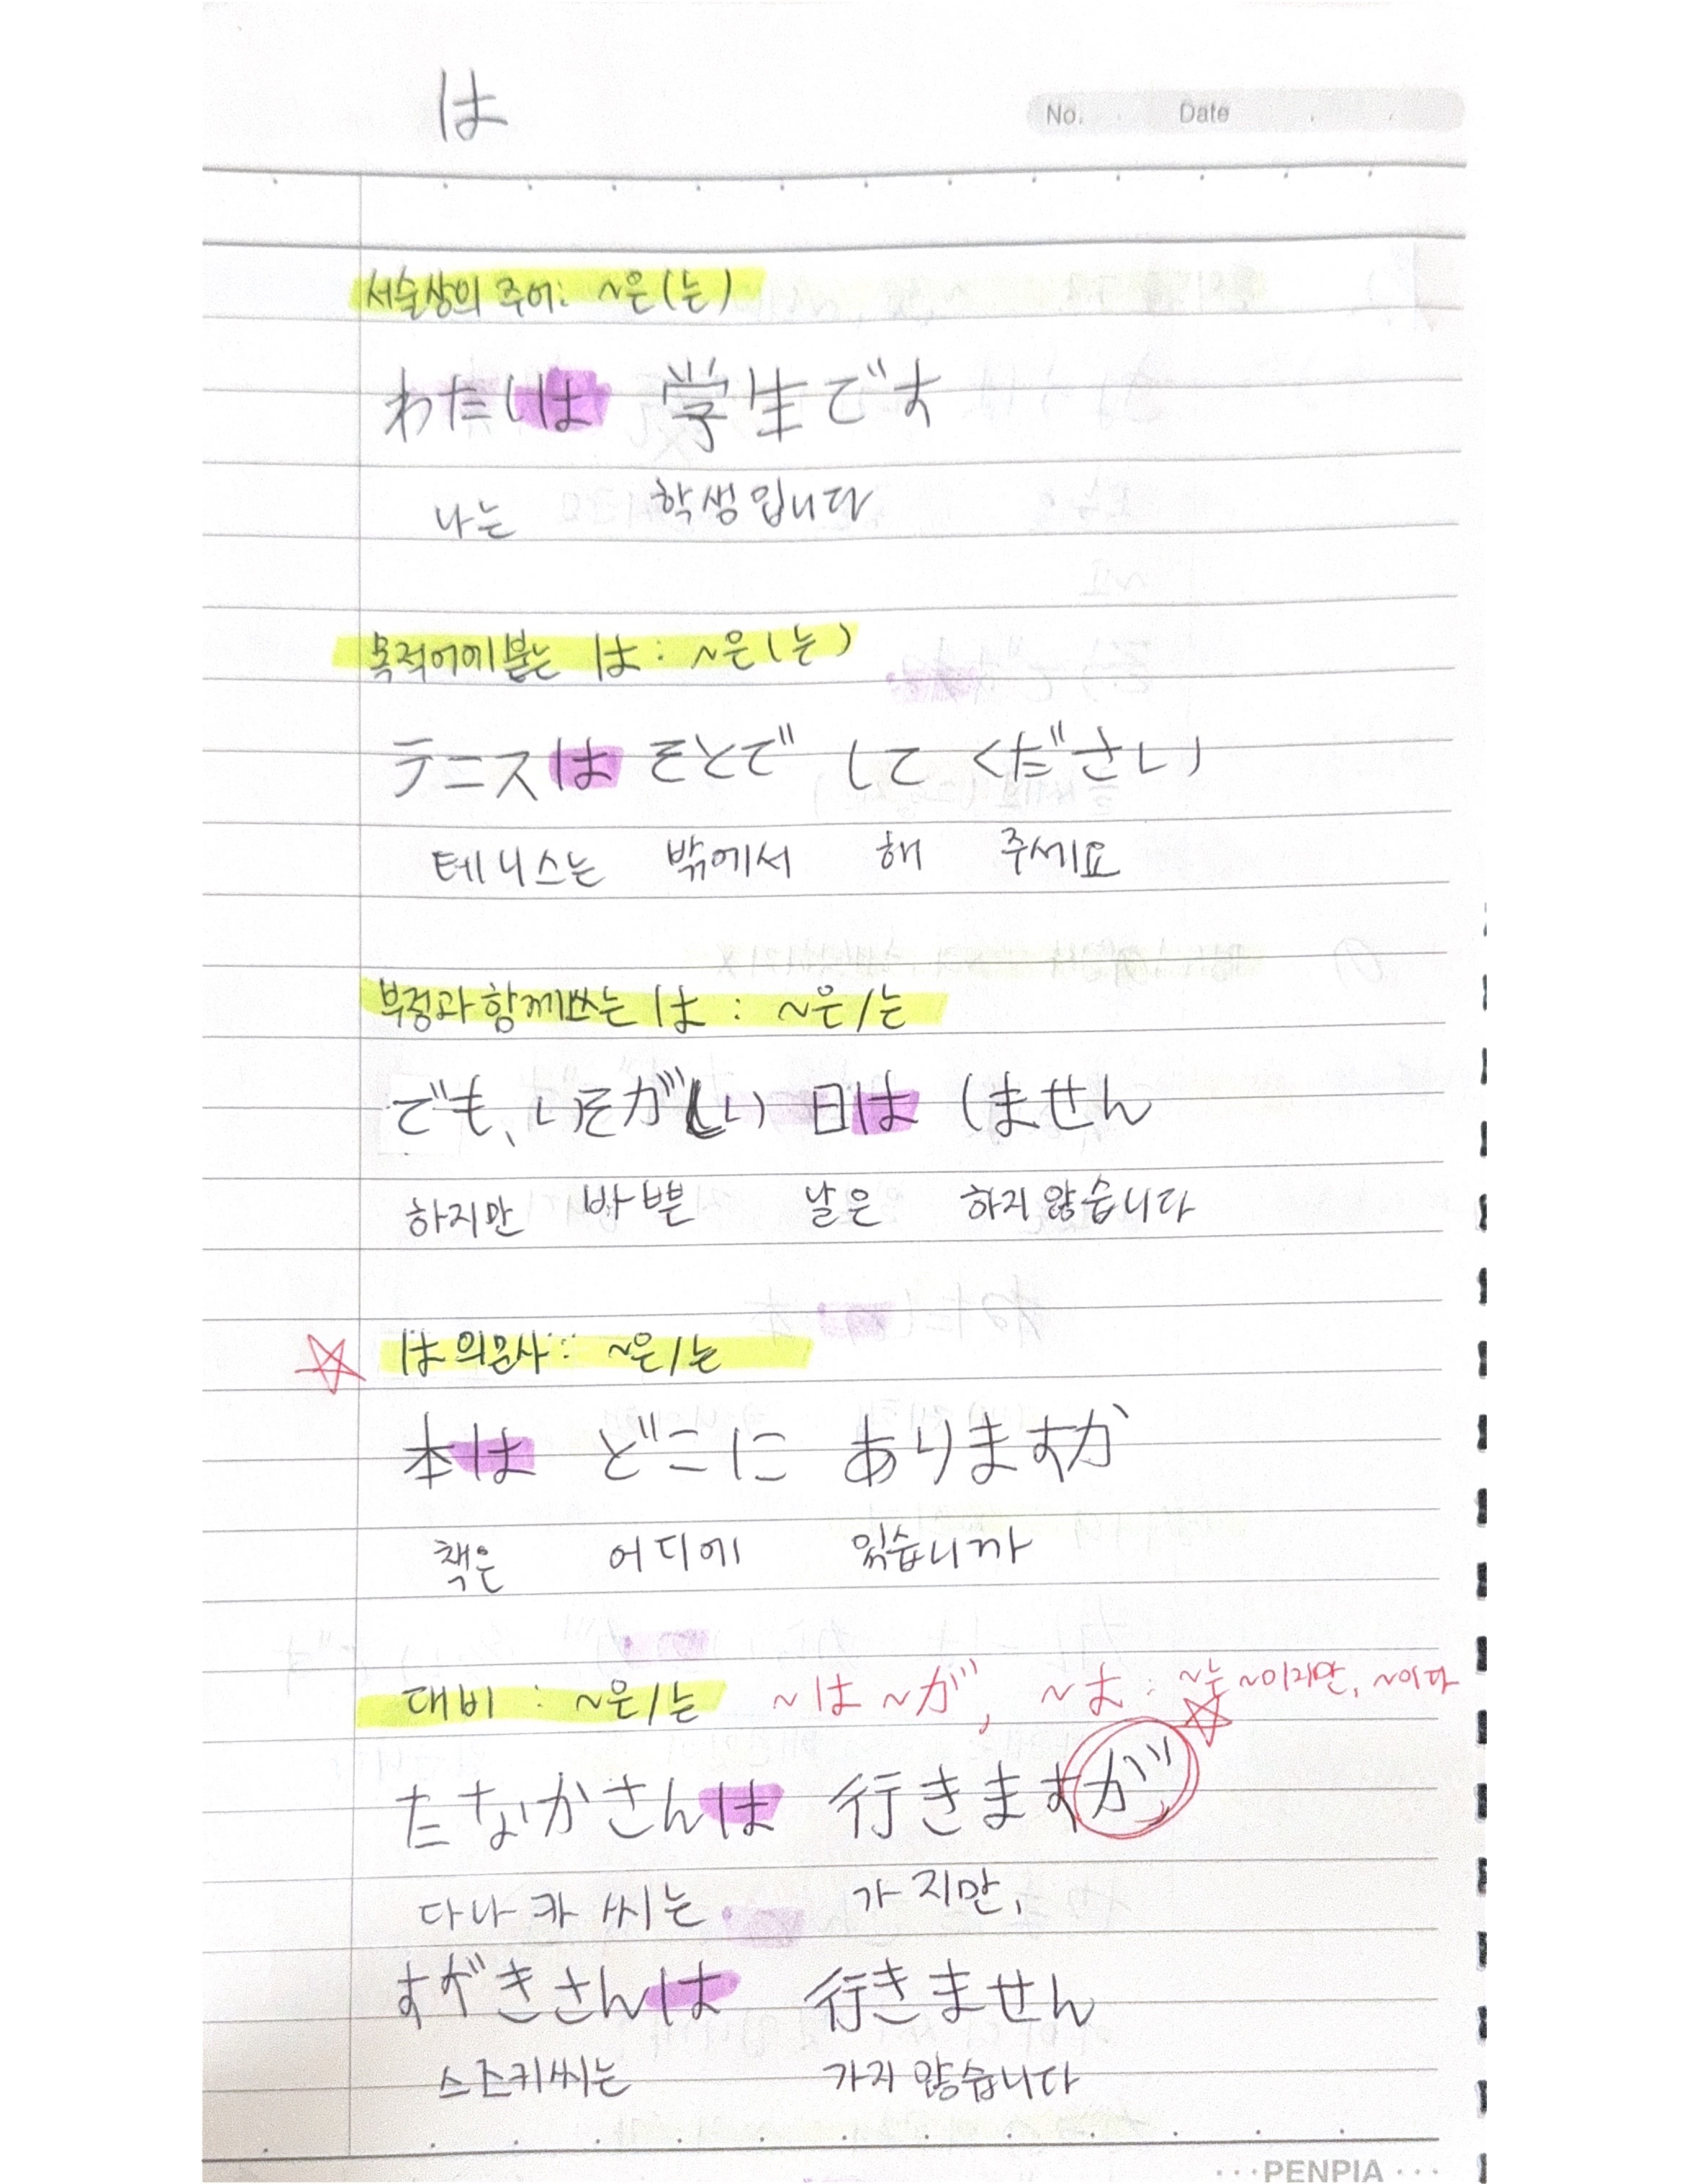 は
No. Date
서술상의 주어: ~은(는)
わたしは 学生です
나는 학생입니다
목적어에 붙는 は : ~은(는)
テニスは そとで して ください
테니스는 밖에서 해 주세요
부정과 함께쓰는 は : ~은/는
でも、いそがしい 日は しません
하지만 바쁜 날은 하지 않습니다
は 의문사: ~은/는
本は どこに ありますか
책은 어디에 있습니까
대비 : ~은/는 ~は ~が, ~は : ~는 ~이지만, ~이다
たなかさんは 行きますが、
다나카 씨는 가지만,
すがきさんは 行きません
스즈키씨는 가지 않습니다
PENPIA